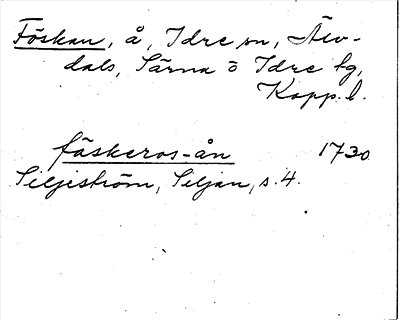 Föskan, å, Idre sn, Älv-
dals, Särna o Idre tg,
Kopp. l.
fäskeros-ån 1730
Siljeström, Siljan, s. 4.